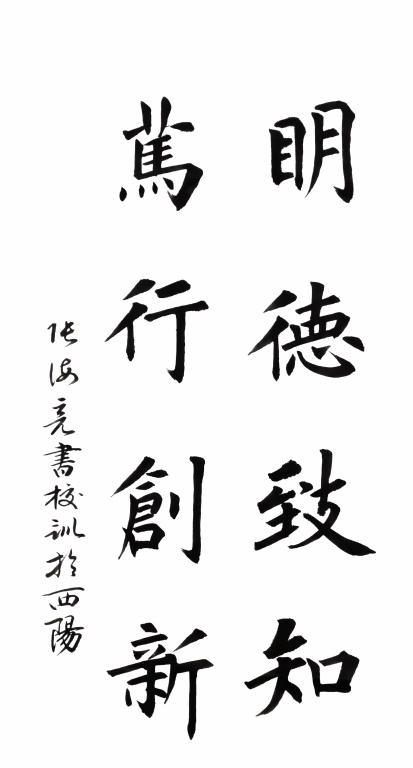 明德致知
篤行創新
张海亮書校訓於西陽